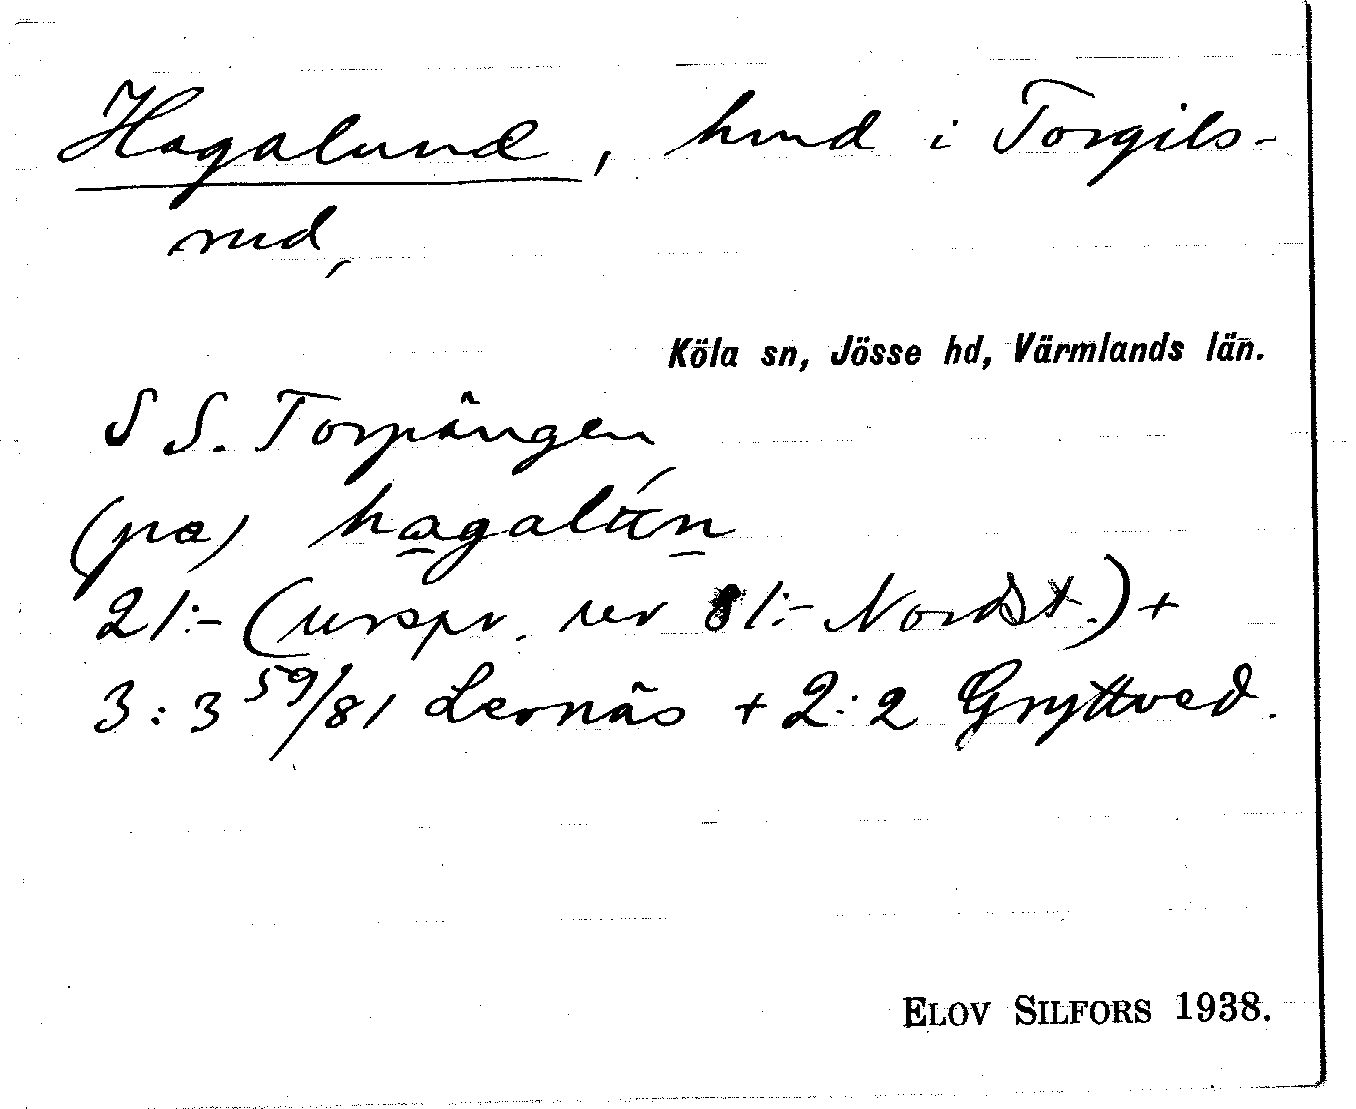 Hagalund, hmd i Torgils-
rud,
Köla sn, Jösse hd, Värmlands län.
S S. Torpängen
(pa) hagalán
21:- (urspr. rev 81:- Nordst.) +
3:3 59/81 Lernäs + 2:2 Gryttved.
ELOV SILFORS 1938.